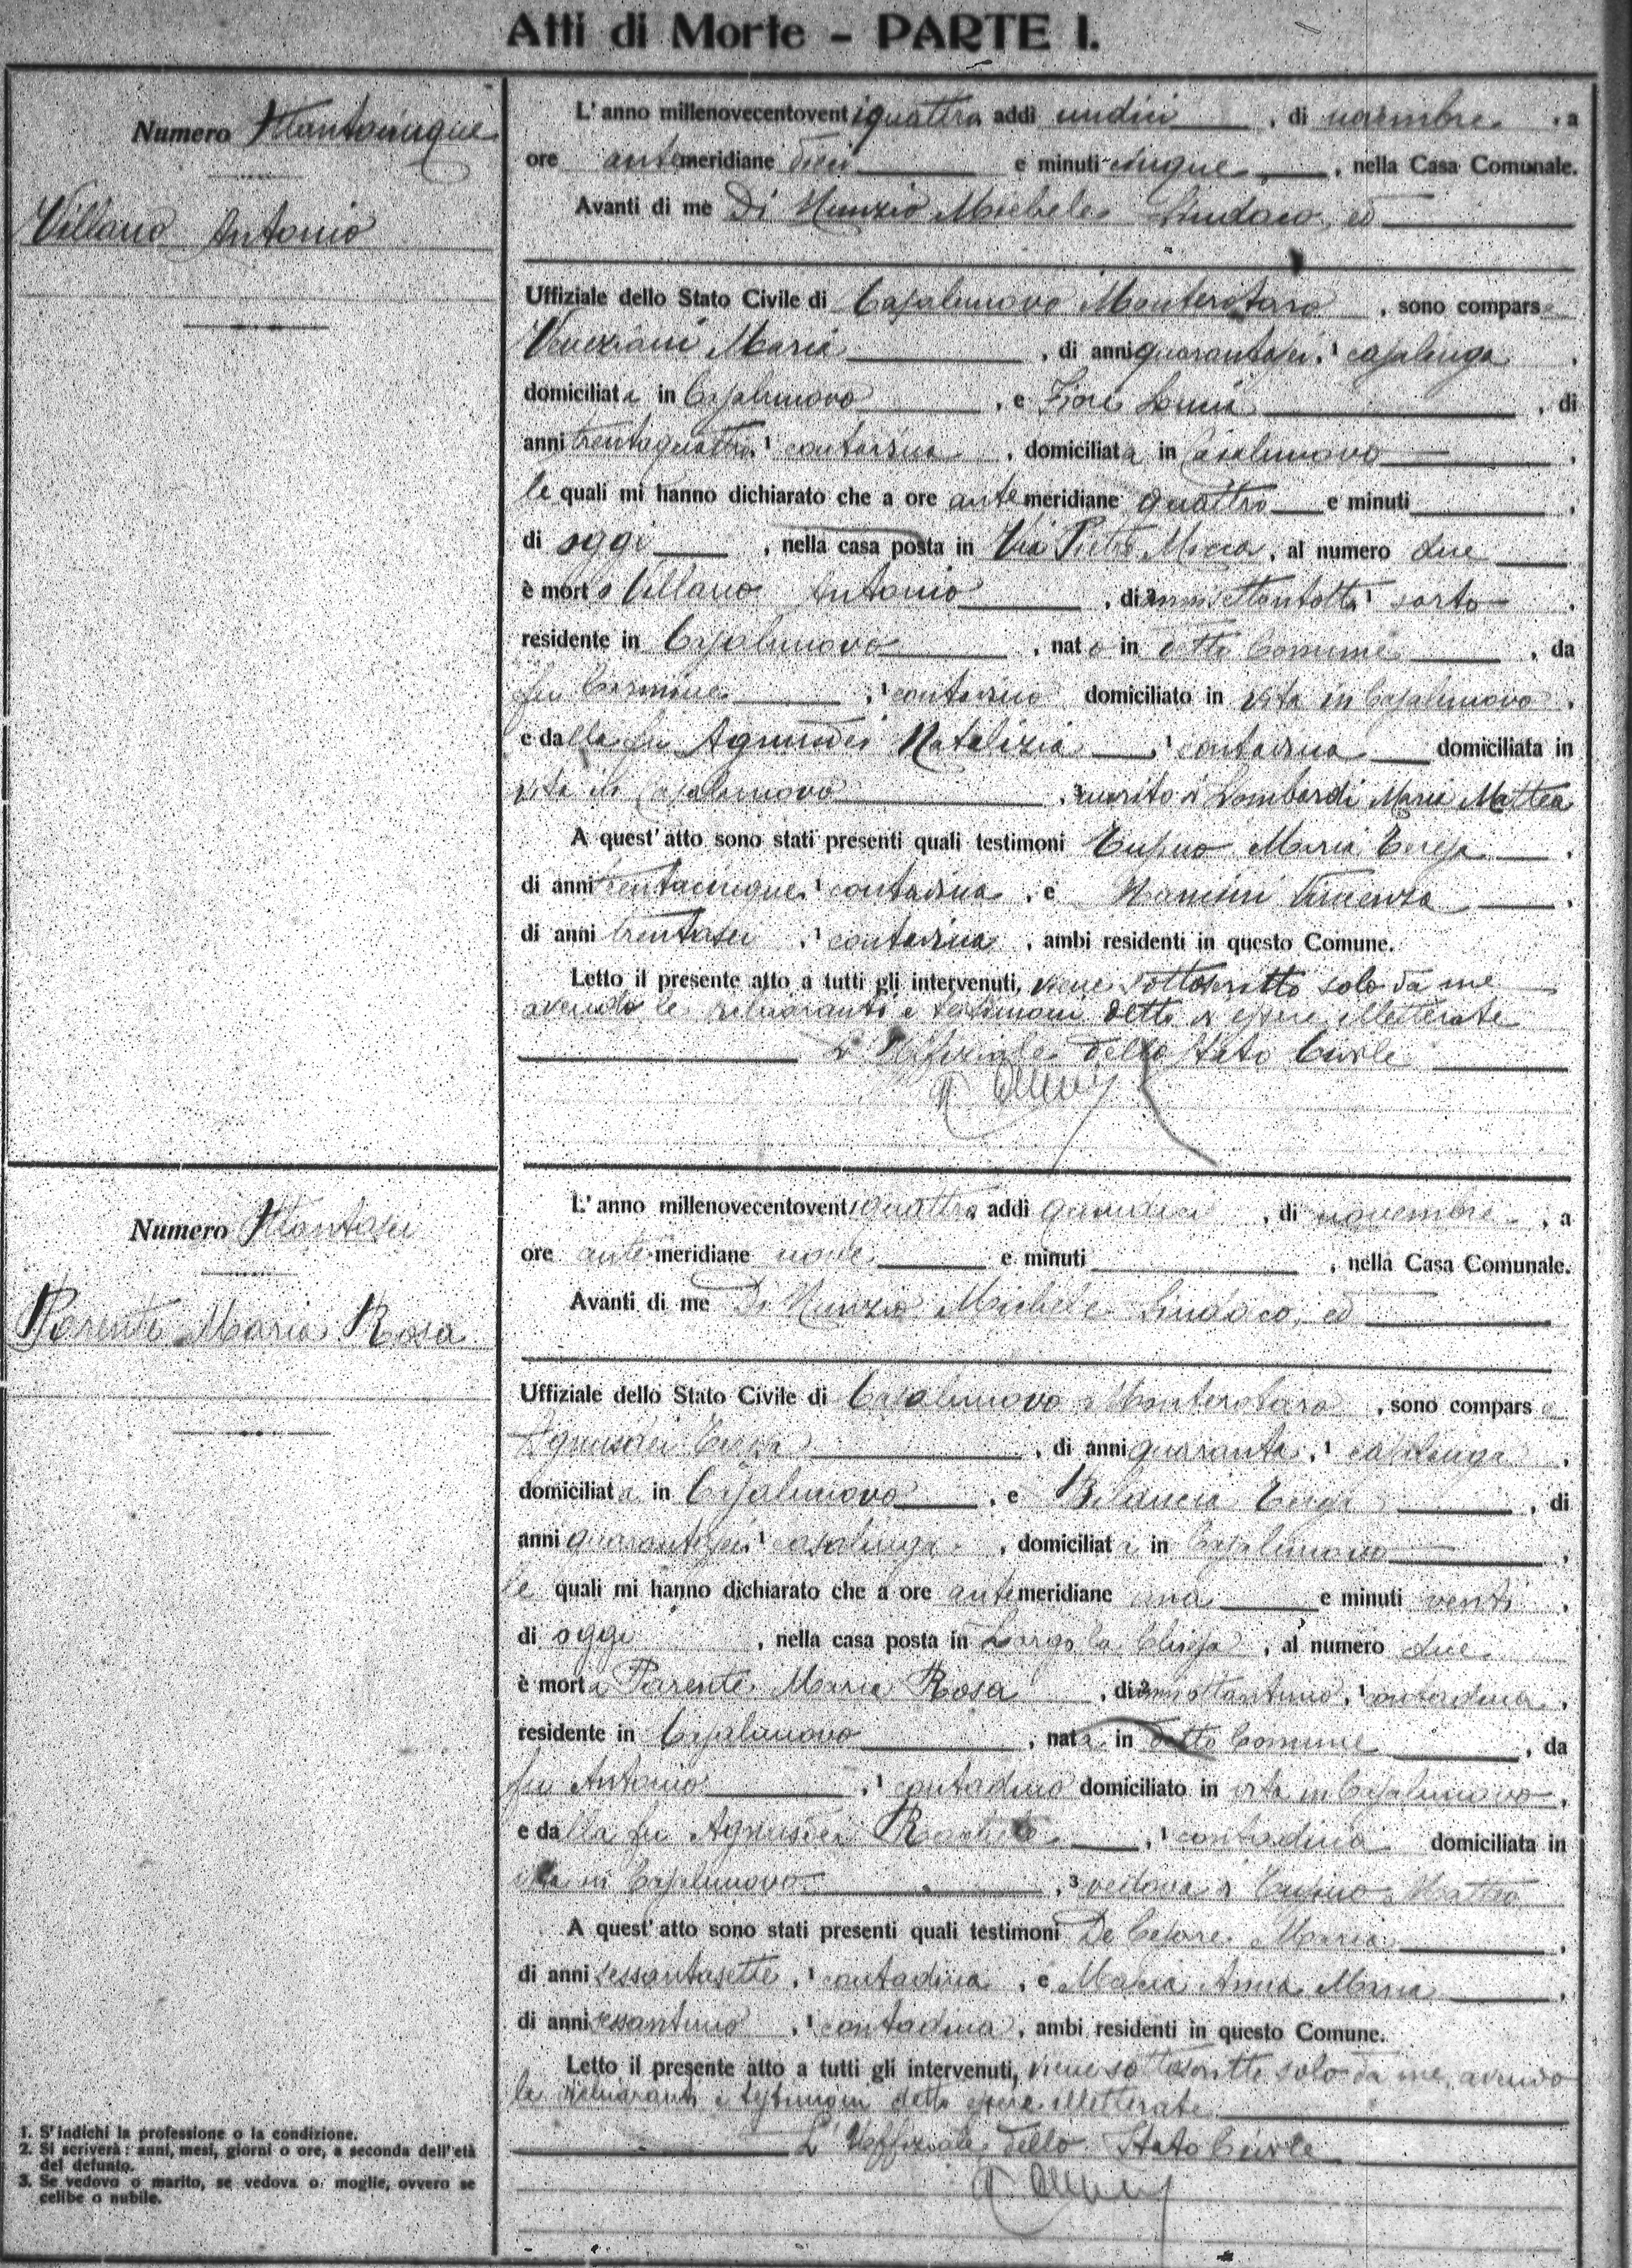 Atti di Morte - PARTE I.
Numero Ottantacinque
Villano Antonio
L' anno millenovecentoventiquattro addì undici, di novembre, a
ore antemeridiane dieci e minuti cinque, nella Casa Comunale.
Avanti di me Di Nunzio Michele Sindaco, ed
Uffiziale dello Stato Civile di Casalnuovo Monterotaro, sono comparse
Veneziani Maria, di anni quarantasei, 1 casalinga,
domiciliata in Casalnuovo, e Fiore Lucia, di
anni trentaquattro, 1 contadina, domiciliata in Casalnuovo,
le quali mi hanno dichiarato che a ore antemeridiane quattro e minuti,
di oggi, nella casa posta in Via Pietro Micca, al numero due
è morto Villano Antonio, di 2 anni settantotto 1 sarto,
residente in Casalnuovo, nato in detto Comune, da
fu Carmine, 1 contadino domiciliato in vita in Casalnuovo,
e dalla fu Agnusdei Natalizia, 1 contadina domiciliata in
vita in Casalnuovo, 3 marito di Lombardi Maria Mattea
A quest' atto sono stati presenti quali testimoni Cusino Maria Teresa,
di anni trentacinque, 1 contadina, e Mancini Vincenza,
di anni trentasei, 1 contadina, ambi residenti in questo Comune.
Letto il presente atto a tutti gli intervenuti, viene sottoscritto solo da me
avendo le dichiaranti e testimoni detto di essere illetterate
L' Uffiziale dello Stato Civile
Numero Ottantasei
Parente Maria Rosa
L' anno millenovecentoventiquattro addì quindici, di novembre, a
ore antemeridiane nove e minuti, nella Casa Comunale.
Avanti di me Di Nunzio Michele Sindaco, ed
Uffiziale dello Stato Civile di Casalnuovo Monterotaro, sono comparse
Agnusdei Teresa, di anni quaranta, 1 casalinga,
domiciliata in Casalnuovo, e Bilancia Teresa, di
anni quarantasei, 1 casalinga, domiciliata in Casalnuovo,
le quali mi hanno dichiarato che a ore antemeridiane una e minuti venti,
di oggi, nella casa posta in Largo la Chiesa, al numero due
è morta Parente Maria Rosa, di 2 anni ottantuno, 1 contadina,
residente in Casalnuovo, nata in detto Comune, da
fu Antonio, 1 contadino domiciliato in vita in Casalnuovo,
e dalla fu Agnusdei, 1 contadina domiciliata in
vita in Casalnuovo, 3 vedova di Cusino Matteo
A quest' atto sono stati presenti quali testimoni De Cesare Maria,
di anni sessantasette, 1 contadina, e Macia Anna Maria,
di anni sessantuno, 1 contadina, ambi residenti in questo Comune.
Letto il presente atto a tutti gli intervenuti, viene sottoscritto solo da me, avendo
le dichiaranti e testimoni detto essere illetterate
L' Uffiziale dello Stato Civile
1. S'indichi la professione o la condizione.
2. Si scriverà: anni, mesi, giorni o ore, a seconda dell'età
del defunto.
3. Se vedovo o marito, se vedova o moglie, ovvero se
celibe o nubile.